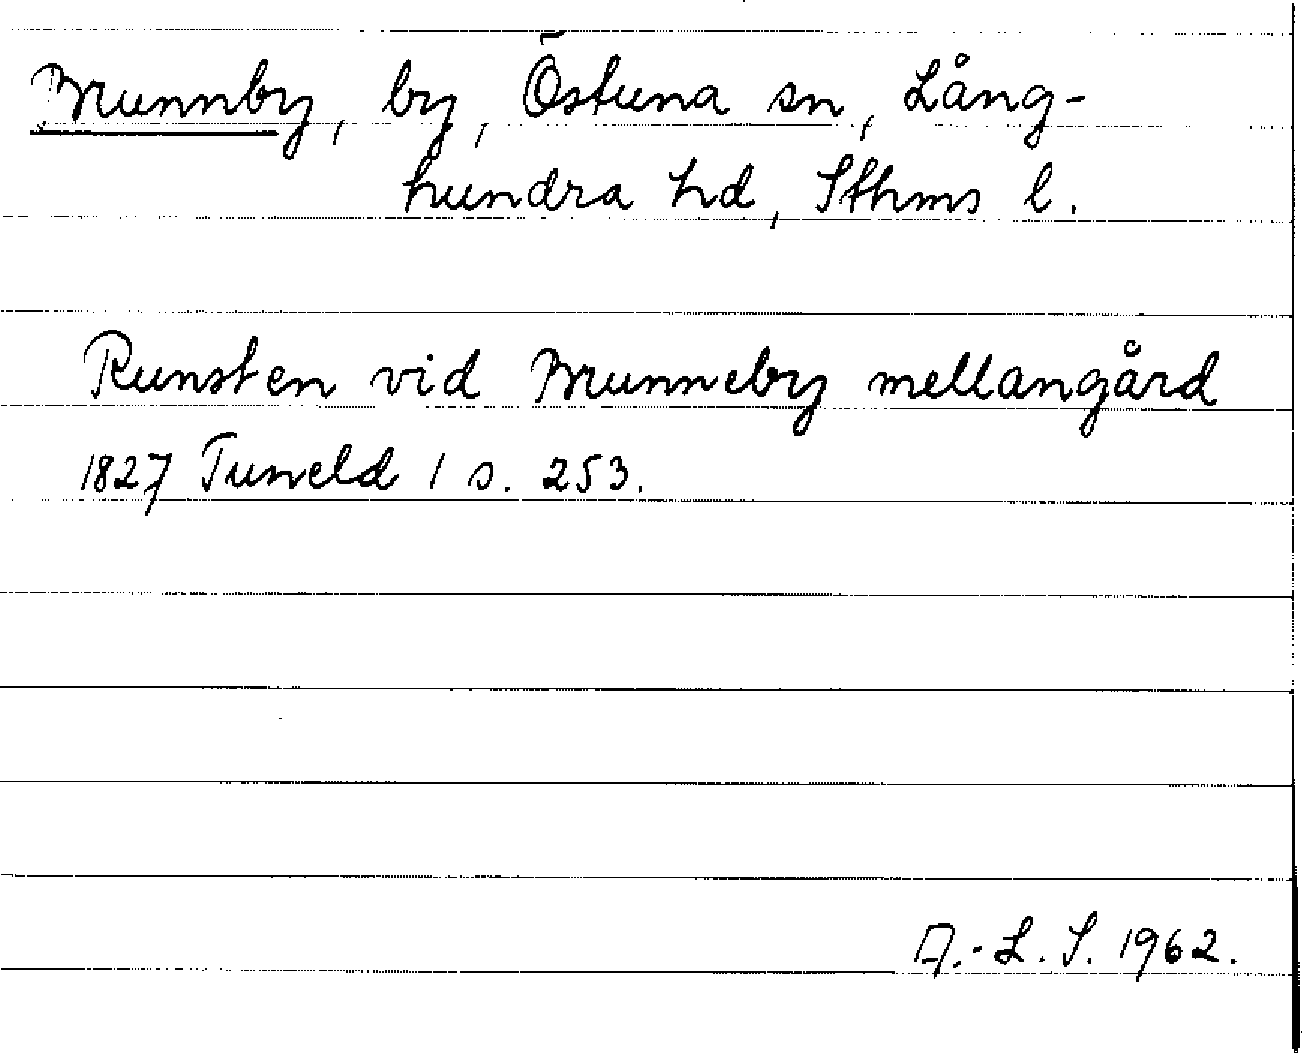 Brunnby, by, Östuna sn, Lång-
hundra hd, Sthms l.
Runsten vid Brunneby mellangård
1827 Tuneld 1 s. 253.
A.-L. S. 1962.